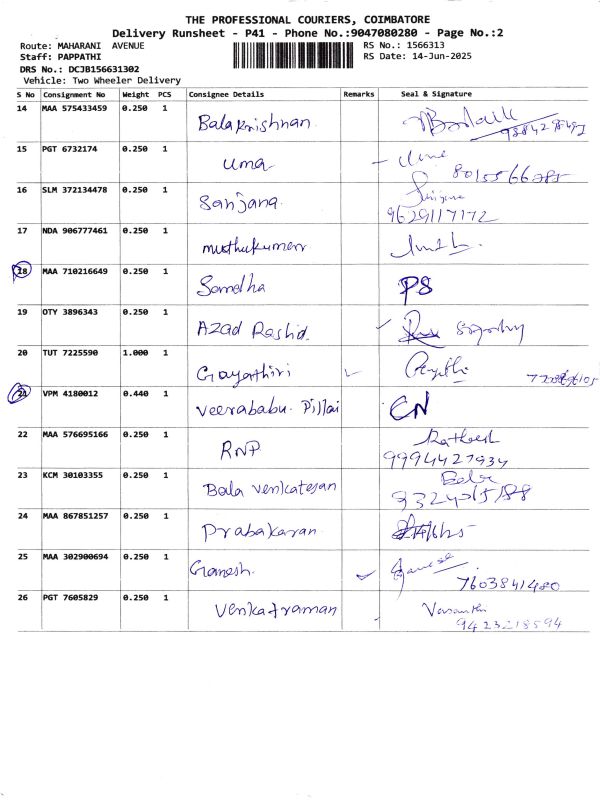 THE PROFESSIONAL COURIERS, COIMBATORE
Delivery Runsheet - P41 - Phone No.:9047080280 - Page No.:2
Route: MAHARANI AVENUE RS No.: 1566313
Staff: PAPPATHI RS Date: 14-Jun-2025
DRS No.: DCJB156631302
Vehicle: Two Wheeler Delivery
S No Consignment No Weight PCS Consignee Details Remarks Seal & Signature
14 MAA 575433459 0.250 1 Balakrishnan
15 PGT 6732174 0.250 1 uma uma
16 SLM 372134478 0.250 1 Sanjana
9629117172
17 NDA 906777461 0.250 1 muthukumar
18 MAA 710216649 0.250 1 Samdha PS
19 OTY 3896343 0.250 1 Azad Rashid.
20 TUT 7225590 1.000 1 Gayathiri
21 VPM 4180012 0.440 1 veerababu. Pillai CN
22 MAA 576695166 0.250 1 RNP
9994427934
23 KCM 30103355 0.250 1 Bala venkatesan Bala
24 MAA 867851257 0.250 1 Prabakaran
25 MAA 302900694 0.250 1 Ganesh. Ganesh
7603841480
26 PGT 7605829 0.250 1 Venkatraman
9423218594